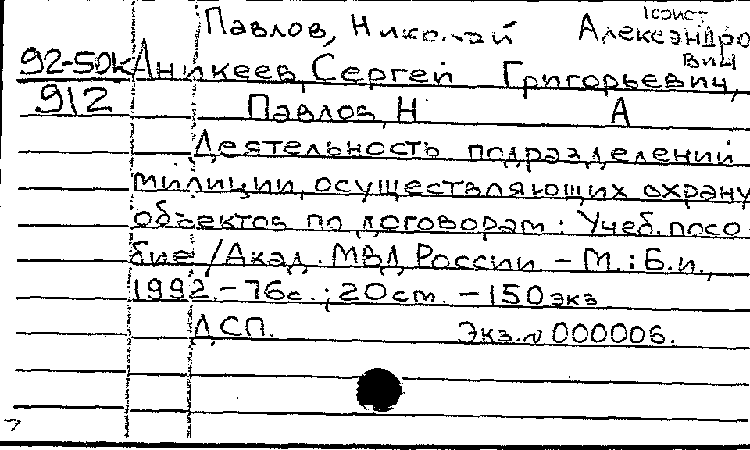 юрист
Павлов, Николай Александро
вич
92-50к Аникеев, Сергей Григорьевич,
912 Павлов, Н А
Деятельность подразделений
милиции, осуществляющих охрану
объектов по договорам: Учеб. посо-
бие / Акад. МВД России - М.: Б.и.,
1992. - 76с.; 20см. - 150экз
ДСП. Экз. № 000006.